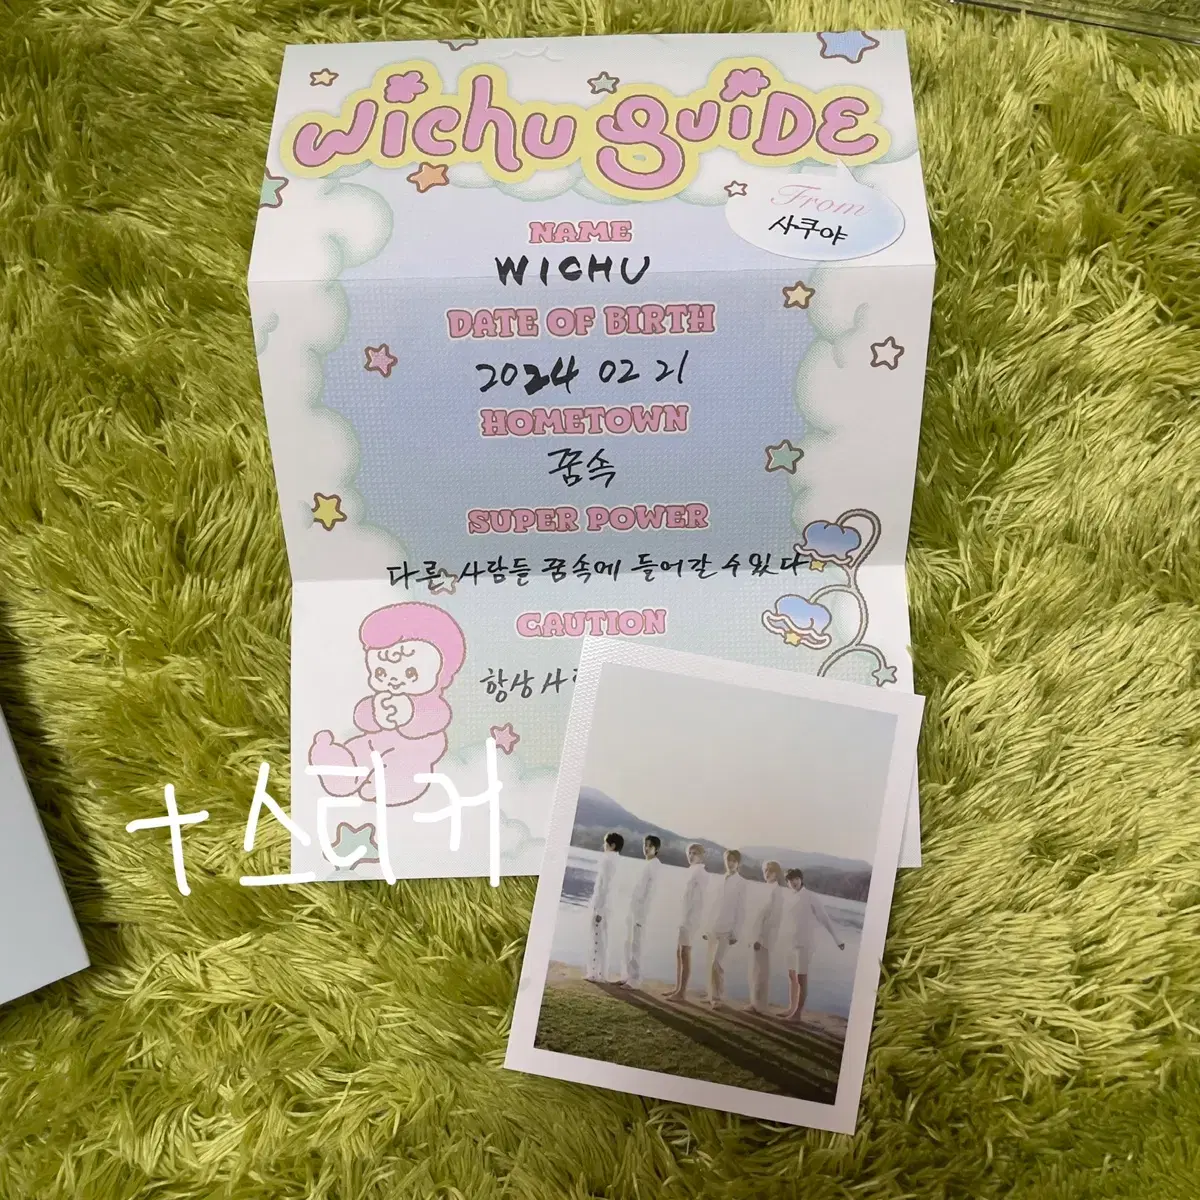 wichu guiDE
From
사쿠야
NAME
WICHU
DATE OF BIRTH
2024 02 21
HOMETOWN
꿈속
SUPER POWER
다른 사람들 꿈속에 들어갈 수 있다
CAUTION
항상 사
+스티커